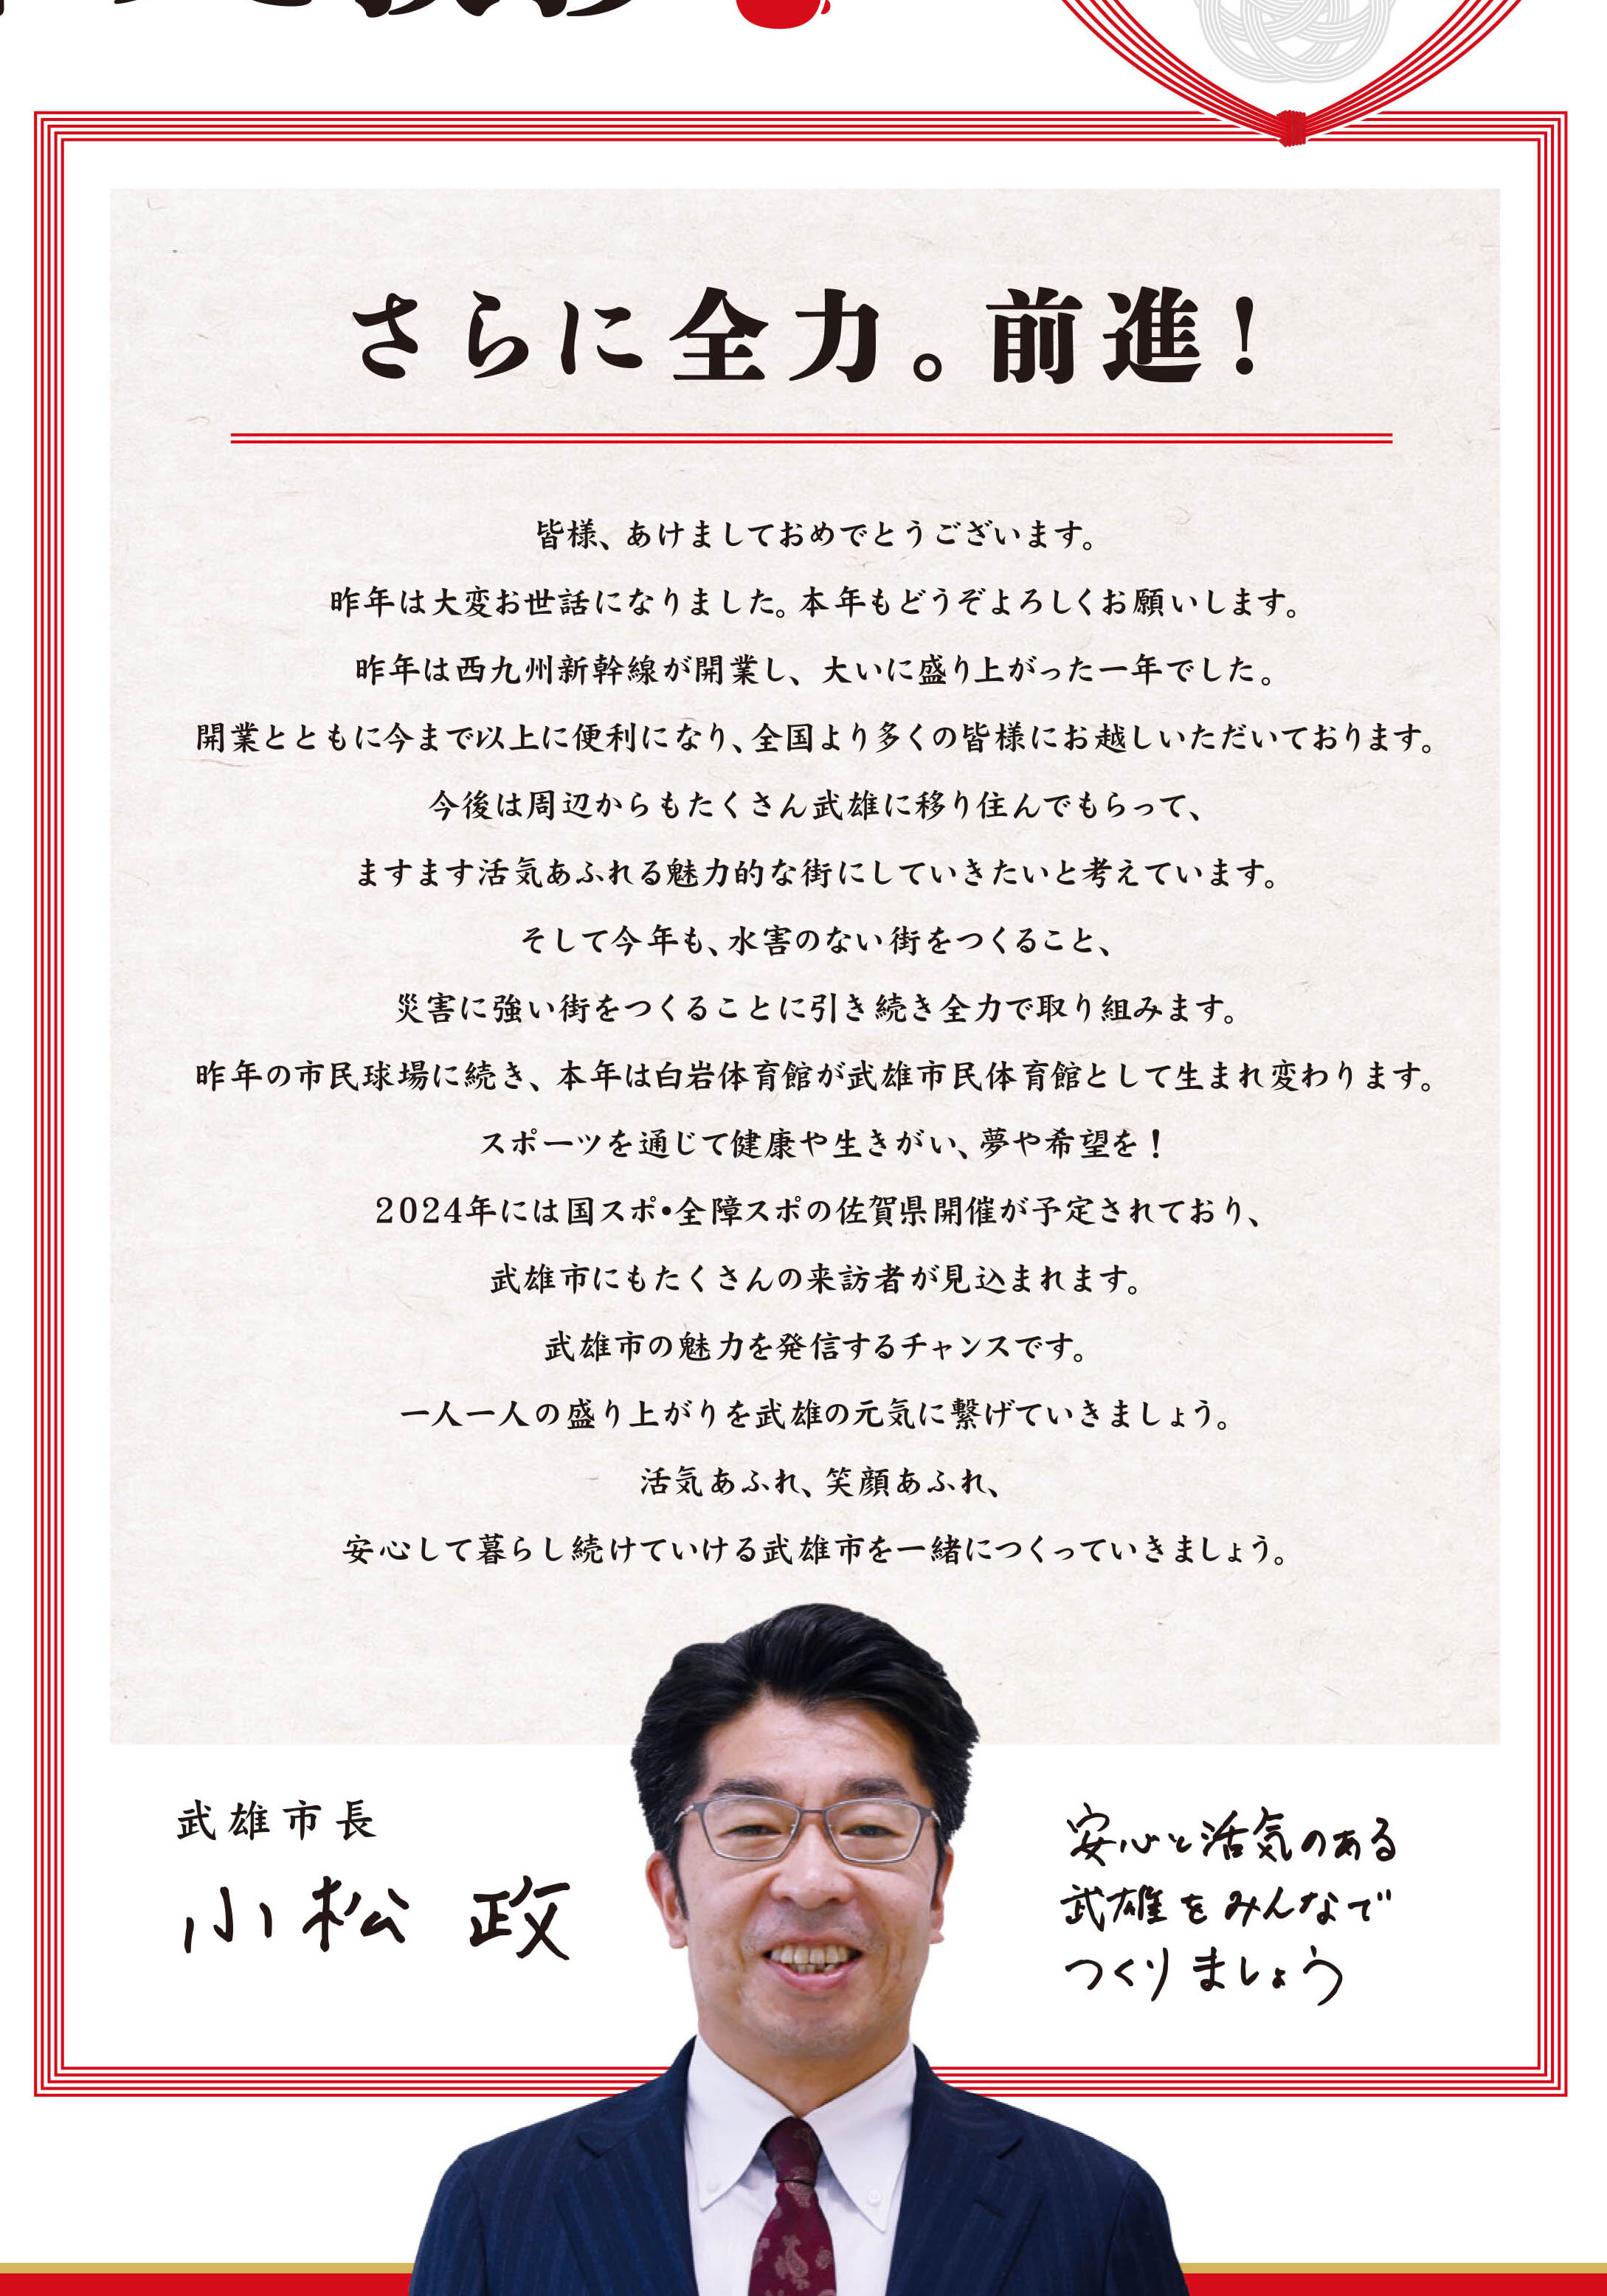 さらに全力。前進！
皆様、あけましておめでとうございます。
昨年は大変お世話になりました。本年もどうぞよろしくお願いします。
昨年は西九州新幹線が開業し、大いに盛り上がった一年でした。
開業とともに今まで以上に便利になり、全国より多くの皆様にお越しいただいております。
今後は周辺からもたくさん武雄に移り住んでもらって、
ますます活気あふれる魅力的な街にしていきたいと考えています。
そして今年も、水害のない街をつくること、
災害に強い街をつくることに引き続き全力で取り組みます。
昨年の市民球場に続き、本年は白岩体育館が武雄市民体育館として生まれ変わります。
スポーツを通じて健康や生きがい、夢や希望を！
2024年には国スポ・全障スポの佐賀県開催が予定されており、
武雄市にもたくさんの来訪者が見込まれます。
武雄市の魅力を発信するチャンスです。
一人一人の盛り上がりを武雄の元気に繋げていきましょう。
活気あふれ、笑顔あふれ、
安心して暮らし続けていける武雄市を一緒につくっていきましょう。
武雄市長
小松 政
安心と活気のある
武雄をみんなで
つくりましょう